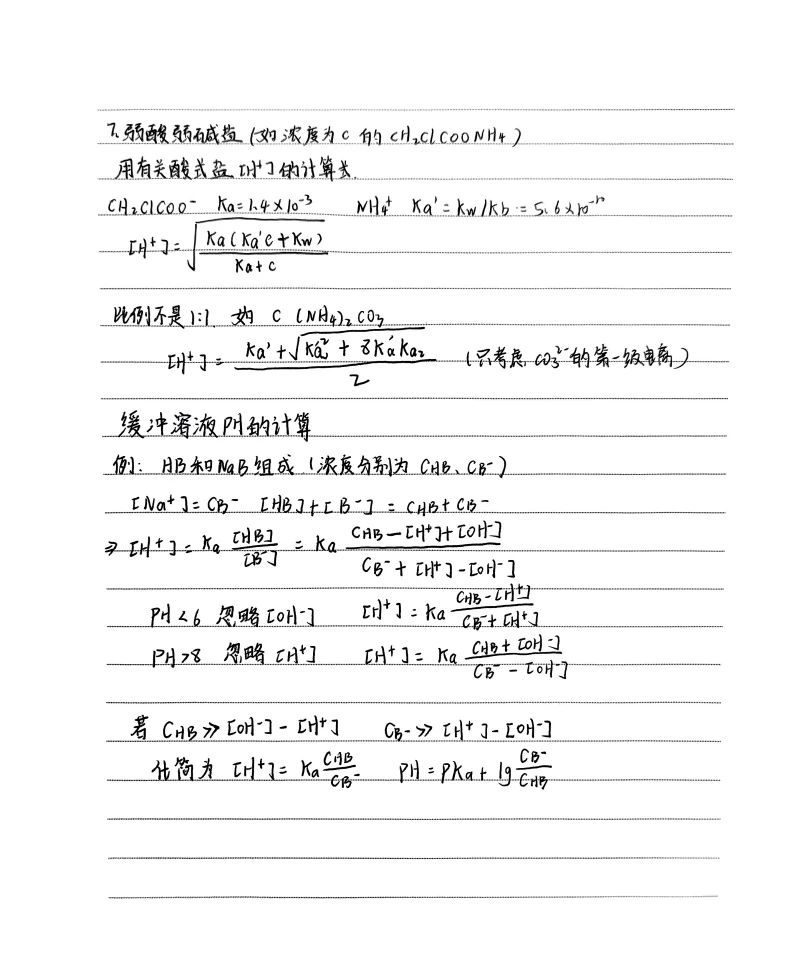 7. 弱酸弱碱盐 (如浓度为 c 的 CH₂ClCOONH₄)
用有关酸式盐 [H⁺] 的计算式.
CH₂ClCOO⁻ Ka=1.4×10⁻³ NH₄⁺ Ka'=Kw/Kb=5.6×10⁻¹⁰
[H⁺]=√(Ka(Ka'c+Kw)/(Ka+c))
比例不是1:1 如 C (NH₄)₂CO₃
[H⁺]=(Ka'+√(Ka'²+8Ka'Ka₂))/2 (只考虑 CO₃²⁻的第一级电离)
缓冲溶液PH的计算
例: HB和NaB组成 (浓度分别为 CHB、CB⁻)
[Na⁺]=CB⁻ [HB]+[B⁻]=CHB+CB⁻
⇒ [H⁺]=Ka [HB]/[B⁻] = Ka (CHB-[H⁺]+[OH⁻])/(CB⁻+[H⁺]-[OH⁻])
PH<6 忽略[OH⁻] [H⁺]=Ka (CHB-[H⁺])/(CB⁻+[H⁺])
PH>8 忽略[H⁺] [H⁺]=Ka (CHB+[OH⁻])/(CB⁻-[OH⁻])
若 CHB≫[OH⁻]-[H⁺] CB⁻≫[H⁺]-[OH⁻]
化简为 [H⁺]=Ka CHB/CB⁻ PH=PKa+lg CB⁻/CHB